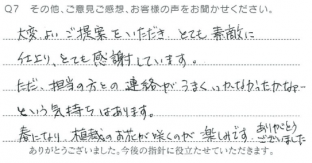 Q7 その他、ご意見ご感想、お客様の声をお聞かせください。
大変よいご提案をいただき、とても素敵に
仕上り、とても感謝しています。
ただ、担当の方との連絡がうまくいかなかったかな…
という気持ちはあります。
春になり、植栽のお花が咲くのが楽しみです。ありがとう
ございました
ありがとうございました。今後の指針に役立たせていただきます。